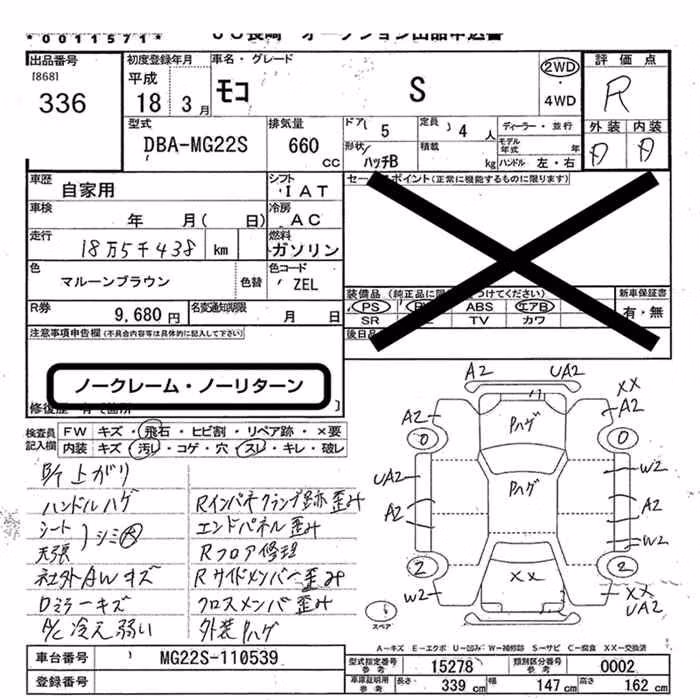 *0011571*
出品番号
[868]
336
初度登録年月
平成
18 3月
車名・グレード
モコ
S
2WD
・
4WD
評価点
R
外装 内装
D D
型式
DBA-MG22S
排気量
660
CC
ドア 5
定員 4 人
ディーラー・並行
形状 ハッチB
積載 kg
モデル年式 年
ハンドル 左・右
車歴
自家用
シフト
IAT
セールスポイント(正常に機能するものに限ります)
車検
年 月( 日)
冷房
AC
走行
18万5千438 km
燃料
ガソリン
色
マルーンブラウン
色替
色コード
ZEL
装備品
新車保証書
有・無
PS ABS エアB
SR TV カワ
R券
9,680円
名変通知期限
月 日
後日品
注意事項申告欄(不具合内容等は具体的に記入して下さい)
ノークレーム・ノーリターン
検査員
記入欄
FW キズ・飛石・ヒビ割・リペア跡・×要
内装 キズ・汚レ・コゲ・穴・スレ・キレ・破レ
下廻り上がり
ハンドルハゲ
シート
天張
シミ大
社外AWキズ
Dミラーキズ
A/C冷え弱い
Rインパネクランプ跡歪み
エンドパネル歪み
Rフロア修理
Rサイドメンバー歪み
クロスメンバ歪み
外装Pハゲ
A2 UA2
XX
A2 A2
Pハゲ
0 0
W2
UA2
Pハゲ
A2 A2
W2
2 2
XX
W2 XX
UA2
スペア
A-キズ E-エクボ U-凹み W-補修跡 S-サビ C-腐食 XX-交換済
車台番号
MG22S-110539
型式指定番号
参考
15278
類別区分番号
参考
0002
登録番号
車庫証明用
参考
長さ 339 cm
幅 147 cm
高さ 162 cm